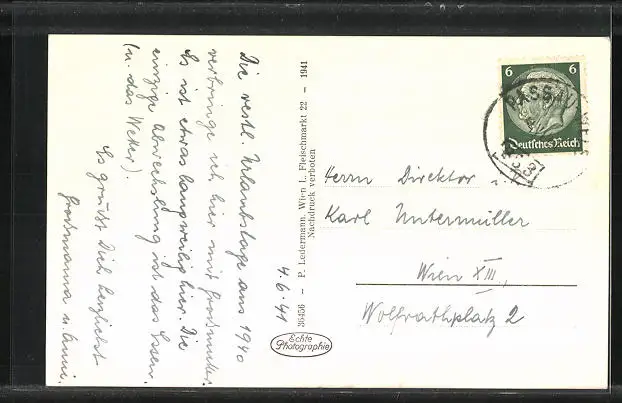 Die restl. Urlaubstage aus 1940
verbringe ich hier mit Großmutter.
Es ist etwas langweilig hier. Die
einzige Abwechslung ist das Essen.
(u. das Wetter).
Es grüßt Dich herzlichst
Großmama u.
4.6.41
36456 – P. Ledermann, Wien I., Fleischmarkt 22 – 1941
Nachdruck verboten
Echte
Photographie
6 6
Deutsches Reich
PASSAU
Herrn Direktor i.
Karl Untermüller
Wien XIII.,
Wolfrathplatz 2